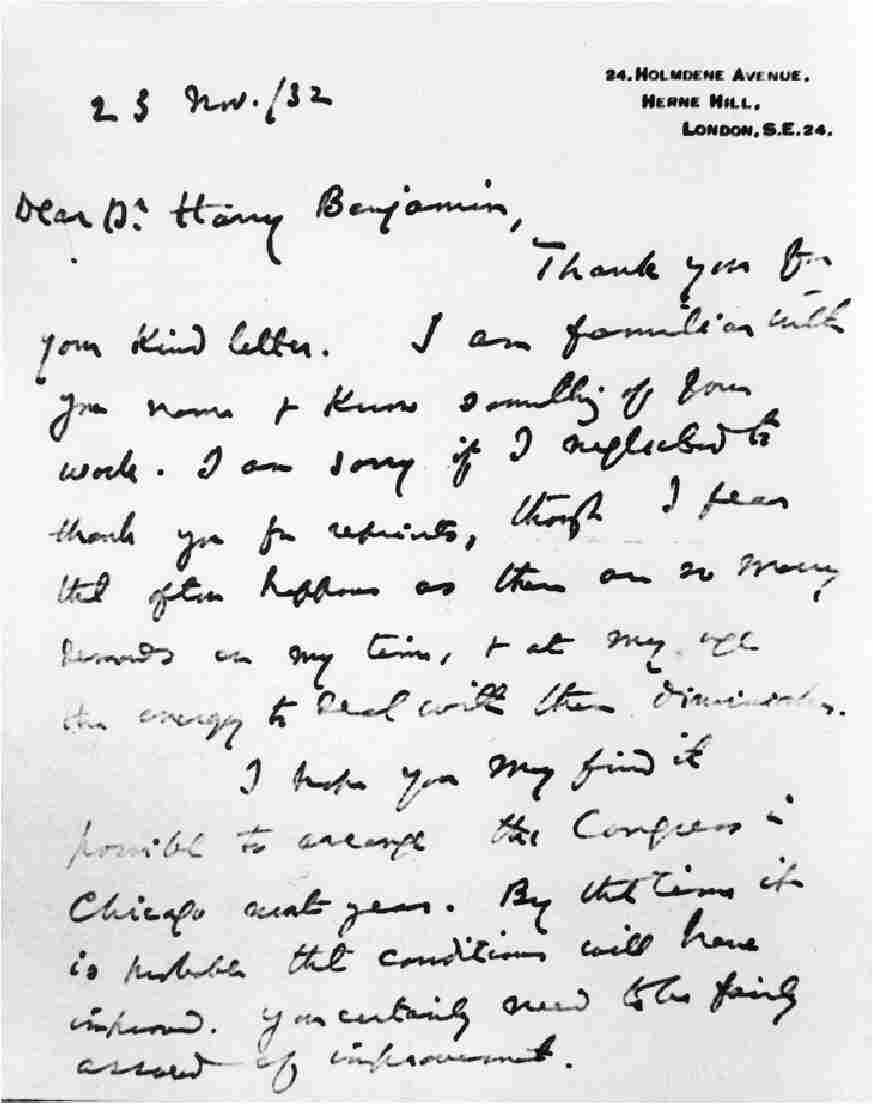 24, HOLMDENE AVENUE,
HERNE HILL,
LONDON, S.E. 24.
23 Nov. /32
Dear Dr Harry Benjamin,
Thank you for
your kind letter. I am familiar with
your name & know something of your
work. I am sorry if I neglected to
thank you for reprints, though I fear
that often happens as there are so many
demands on my time, & at my age
the energy to deal with them diminishes.
I hope you may find it
possible to arrange the Congress in
Chicago next year. By that time it
is probable that conditions will have
improved. You certainly need to be fairly
assured of improvement.